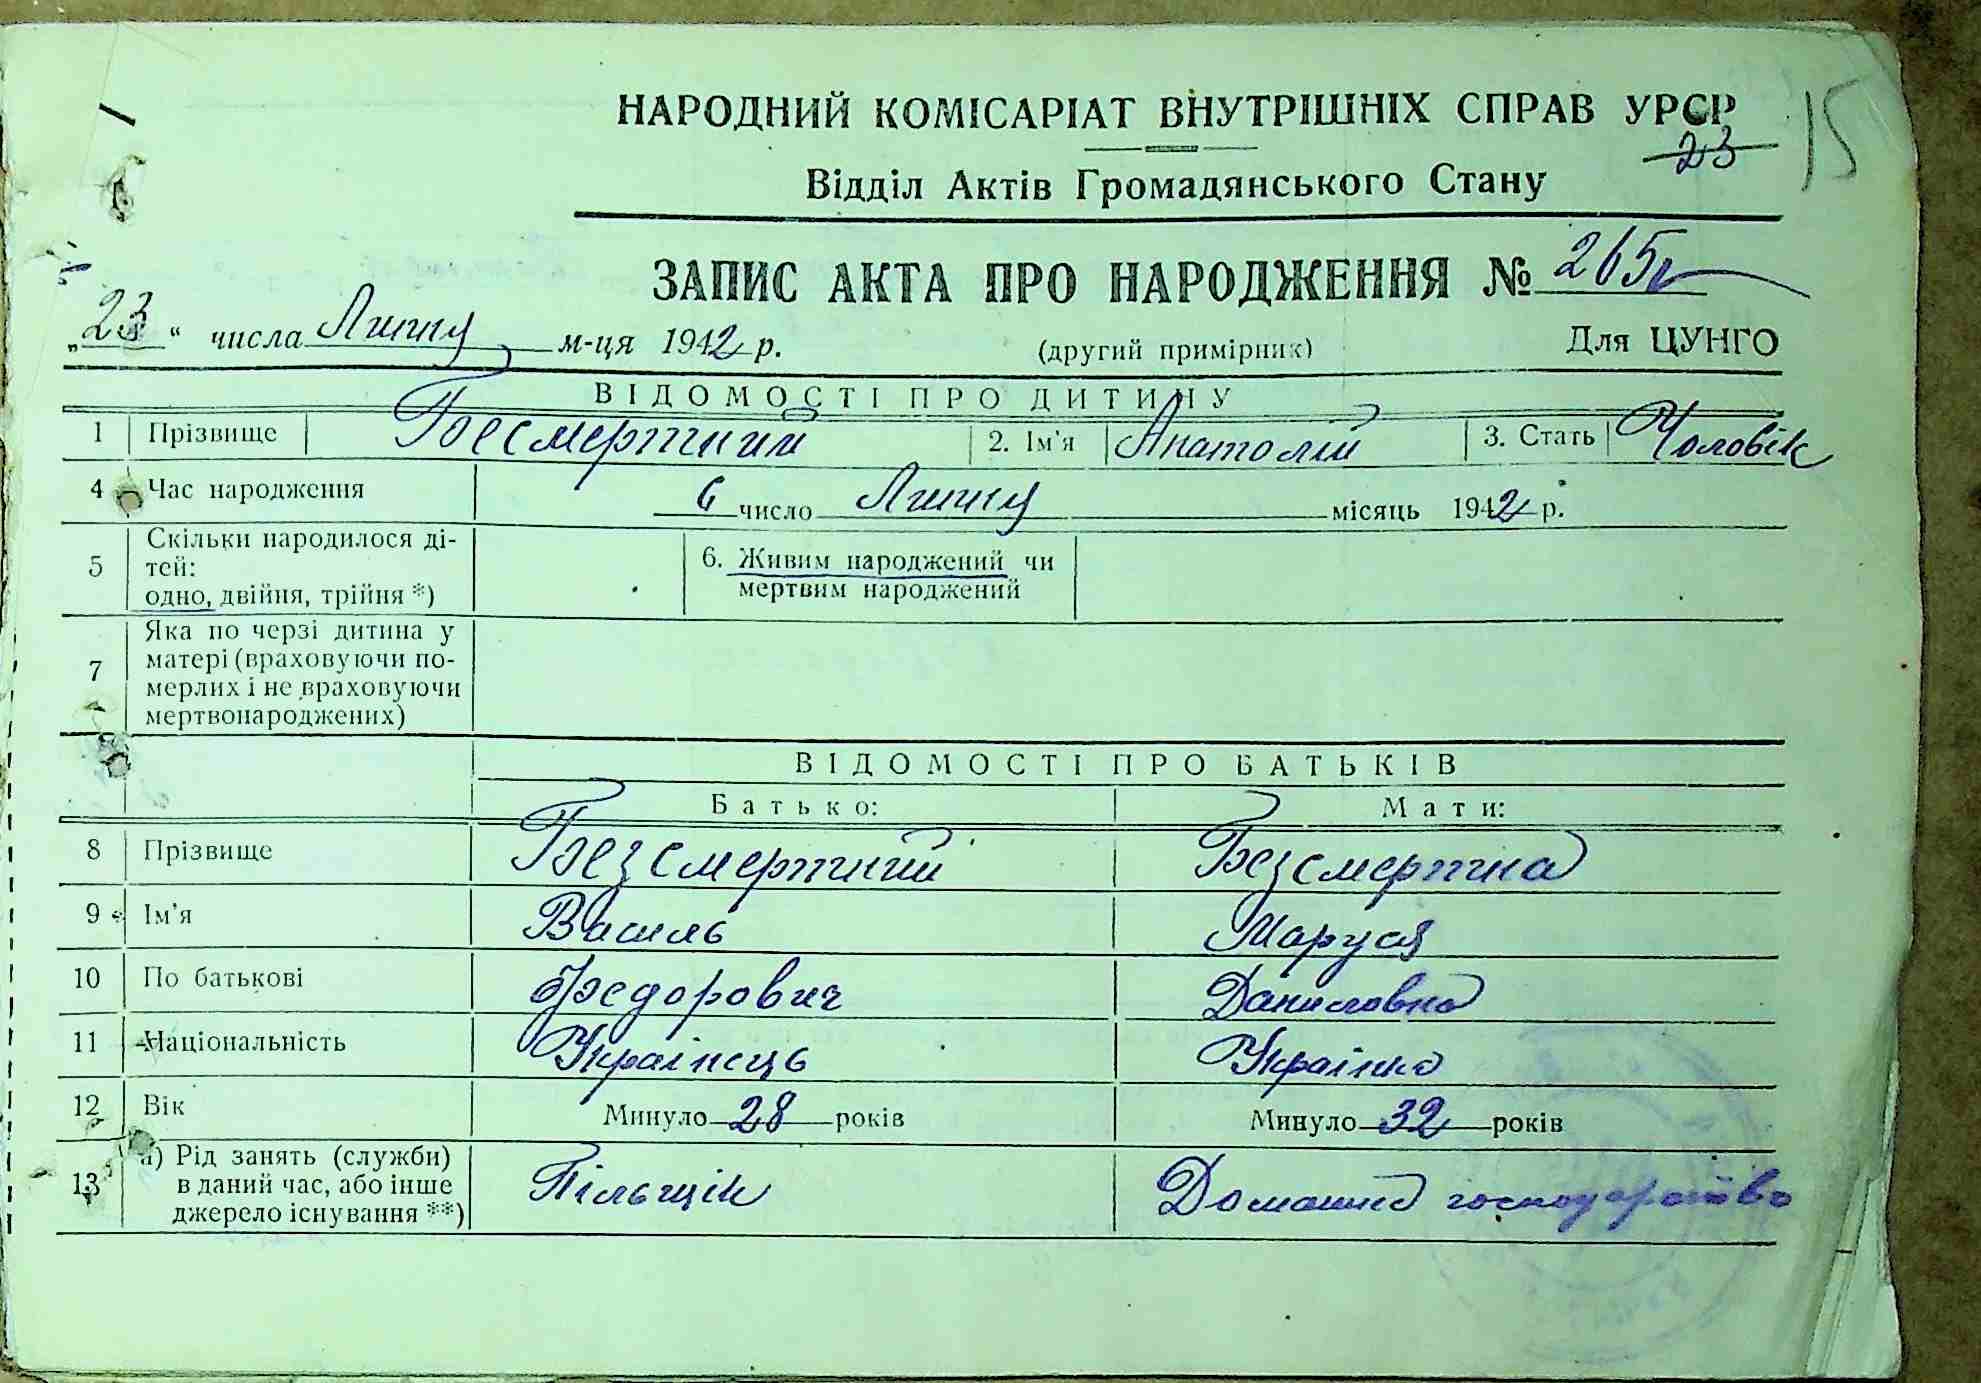 НАРОДНИЙ КОМІСАРІАТ ВНУТРІШНІХ СПРАВ УРСР
15
23
Відділ Актів Громадянського Стану
ЗАПИС АКТА ПРО НАРОДЖЕННЯ № 265
„23“ числа Липня м-ця 1942 р. (другий примірник) Для ЦУНГО
ВІДОМОСТІ ПРО ДИТИНУ
1 Прізвище Бесмертний 2. Ім'я Анатолій 3. Стать Чоловік
4 Час народження 6 число Липня місяць 1942 р.
5 Скільки народилося ді-
тей:
одно, двійня, трійня *)
6. Живим народжений чи
мертвим народжений
7 Яка по черзі дитина у
матері (враховуючи по-
мерлих і не враховуючи
мертвонароджених)
ВІДОМОСТІ ПРО БАТЬКІВ
Батько: Мати:
8 Прізвище Безсмертний Безсмертна
9 Ім'я Василь Маруся
10 По батькові Федорович Даниловна
11 Національність Українець Українка
12 Вік Минуло 28 років Минуло 32 років
13 а) Рід занять (служби)
в даний час, або інше
джерело існування **)
Пільщік Домашнє господарство